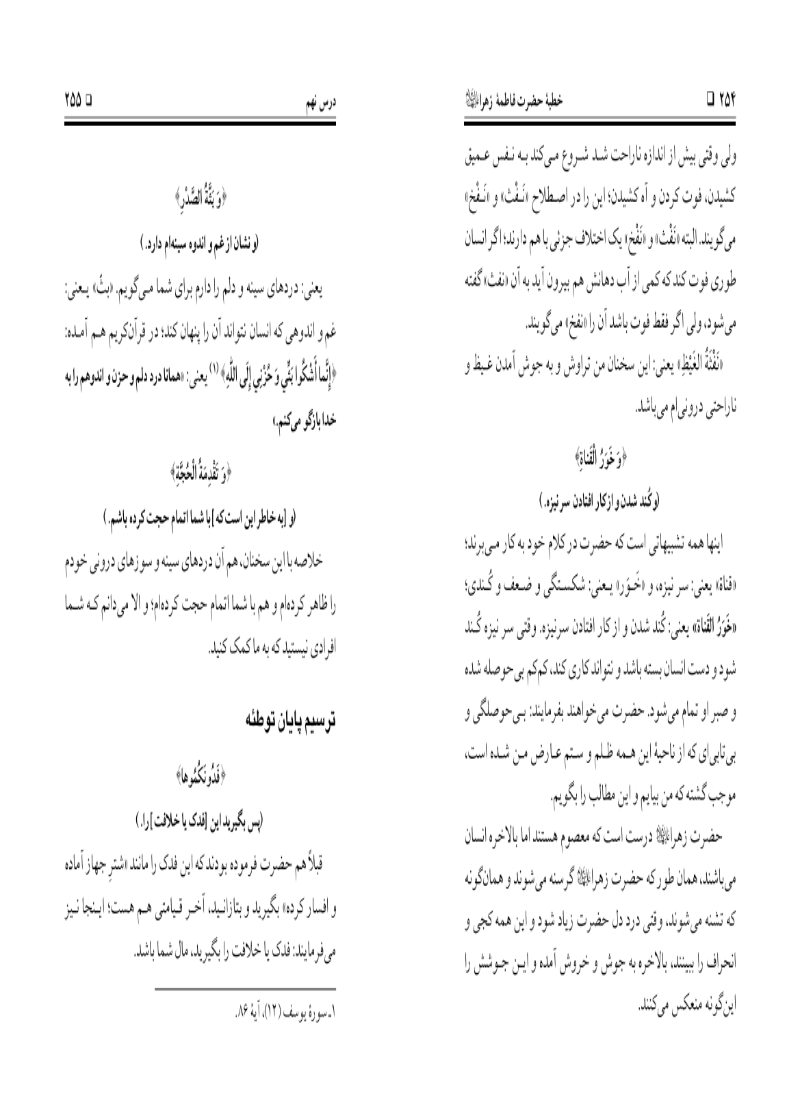 ۲۵۴ ❑ خطبهٔ حضرت فاطمهٔ زهرا
ولی وقتی بیش از اندازه ناراحت شد شروع می‌کند به نفس عمیق
کشیدن، فوت کردن و آه کشیدن؛ این را در اصطلاح «نَفْث» و «نَفْخ»
می‌گویند. البته «نَفْث» و «نَفْخ» یک اختلاف جزئی با هم دارند؛ اگر انسان
طوری فوت کند که کمی از آب دهانش هم بیرون آید به آن «نفث» گفته
می‌شود، ولی اگر فقط فوت باشد آن را «نفخ» می‌گویند.
«نَفْثَةُ الغَيْظِ» یعنی: این سخنان من تراوش و به جوش آمدن غیظ و
ناراحتی درونی‌ام می‌باشد.
﴿وَ خَوَرُ الْقَناةِ﴾
(و کُند شدن و از کار افتادن سر نیزه.)
اینها همه تشبیهاتی است که حضرت در کلام خود به کار می‌برند؛
«قناة» یعنی: سر نیزه، و «خَوَر» یعنی: شکستگی و ضعف و کُندی؛
«خَوَرُ القَناة» یعنی: کُند شدن و از کار افتادن سرنیزه. وقتی سر نیزه کُند
شود و دست انسان بسته باشد و نتواند کاری کند، کم‌کم بی‌حوصله شده
و صبر او تمام می‌شود. حضرت می‌خواهند بفرمایند: بی‌حوصلگی و
بی‌تابی‌ای که از ناحیهٔ این همه ظلم و ستم عارض من شده است،
موجب گشته که من بیایم و این مطالب را بگویم.
حضرت زهرا درست است که معصوم هستند اما بالاخره انسان
می‌باشند، همان طور که حضرت زهرا گرسنه می‌شوند و همان‌گونه
که تشنه می‌شوند، وقتی درد دل حضرت زیاد شود و این همه کجی و
انحراف را ببینند، بالاخره به جوش و خروش آمده و این جوشش را
این‌گونه منعکس می‌کنند.
درس نهم ❑ ۲۵۵
﴿وَ بَثَّةُ الصَّدْرِ﴾
(و نشان از غم و اندوه سینه‌ام دارد.)
یعنی: دردهای سینه و دلم را دارم برای شما می‌گویم. «بثّ» یعنی:
غم و اندوهی که انسان نتواند آن را پنهان کند؛ در قرآن‌کریم هم آمده:
﴿إِنَّما أَشْكُوا بَثِّي وَ حُزْنِي إِلَى اللّٰهِ﴾(۱) یعنی: «همانا درد دلم و حزن و اندوهم را به
خدا بازگو می‌کنم.»
﴿وَ تَقْدِمَةُ الْحُجَّةِ﴾
(و [به خاطر این است که] با شما اتمام حجت کرده باشم.)
خلاصه با این سخنان، هم آن دردهای سینه و سوزهای درونی خودم
را ظاهر کرده‌ام و هم با شما اتمام حجت کرده‌ام؛ و الا می‌دانم که شما
افرادی نیستید که به ما کمک کنید.
ترسیم پایان توطئه
﴿فَدُونَكُمُوها﴾
(پس بگیرید این [فدک یا خلافت] را.)
قبلاً هم حضرت فرموده بودند که این فدک را مانند «شترِ جهاز آماده
و افسار کرده» بگیرید و بتازانید، آخر قیامتی هم هست؛ اینجا نیز
می‌فرمایند: فدک یا خلافت را بگیرید، مال شما باشد.
۱ـ سورهٔ یوسف (۱۲)، آیهٔ ۸۶.